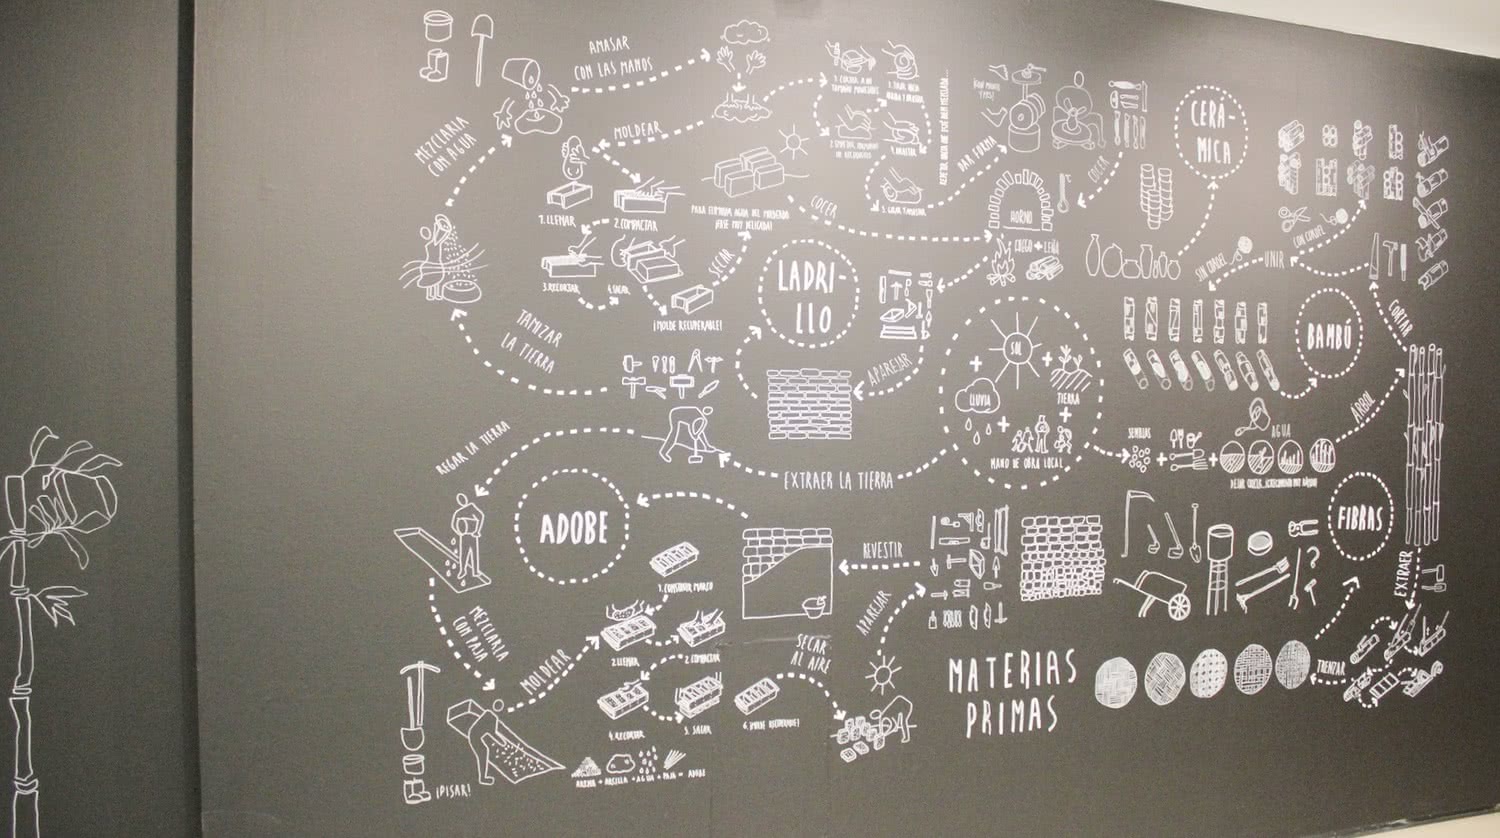 AMASAR
CON LAS MANOS
MEZCLARLA
CON AGUA
MOLDEAR
1. LLENAR
2. COMPACTAR
3. RECORTAR
4. SACAR
¡MOLDE RECUPERABLE!
SECAR
PARA ELIMINAR AGUA DEL MOLDEADO
¡FASE MUY DELICADA!
TAMIZAR
LA TIERRA
COCER
DAR FORMA
COCER
HORNO
FUEGO + LEÑA
CERÁ-
MICA
LADRI-
LLO
APAREJAR
SOL
LLUVIA
TIERRA
MANO DE OBRA LOCAL
EXTRAER LA TIERRA
SIN CORDEL
UNIR
CON CORDEL
CORTAR
BAMBÚ
ARBOL
SEMILLAS
AGUA
FIBRAS
EXTRAER
TRENZAR
REGAR LA TIERRA
ADOBE
MEZCLARLA
CON PAJA
¡PISAR!
MOLDEAR
1. CONSTRUIR MARCO
2. LLENAR
2. COMPACTAR
4. RECORTAR
5. SACAR
6. ¡MOLDE RECUPERABLE!
ARENA + ARCILLA + AGUA + PAJA = ADOBE
SECAR
AL AIRE
APAREJAR
REVESTIR
MATERIAS
PRIMAS